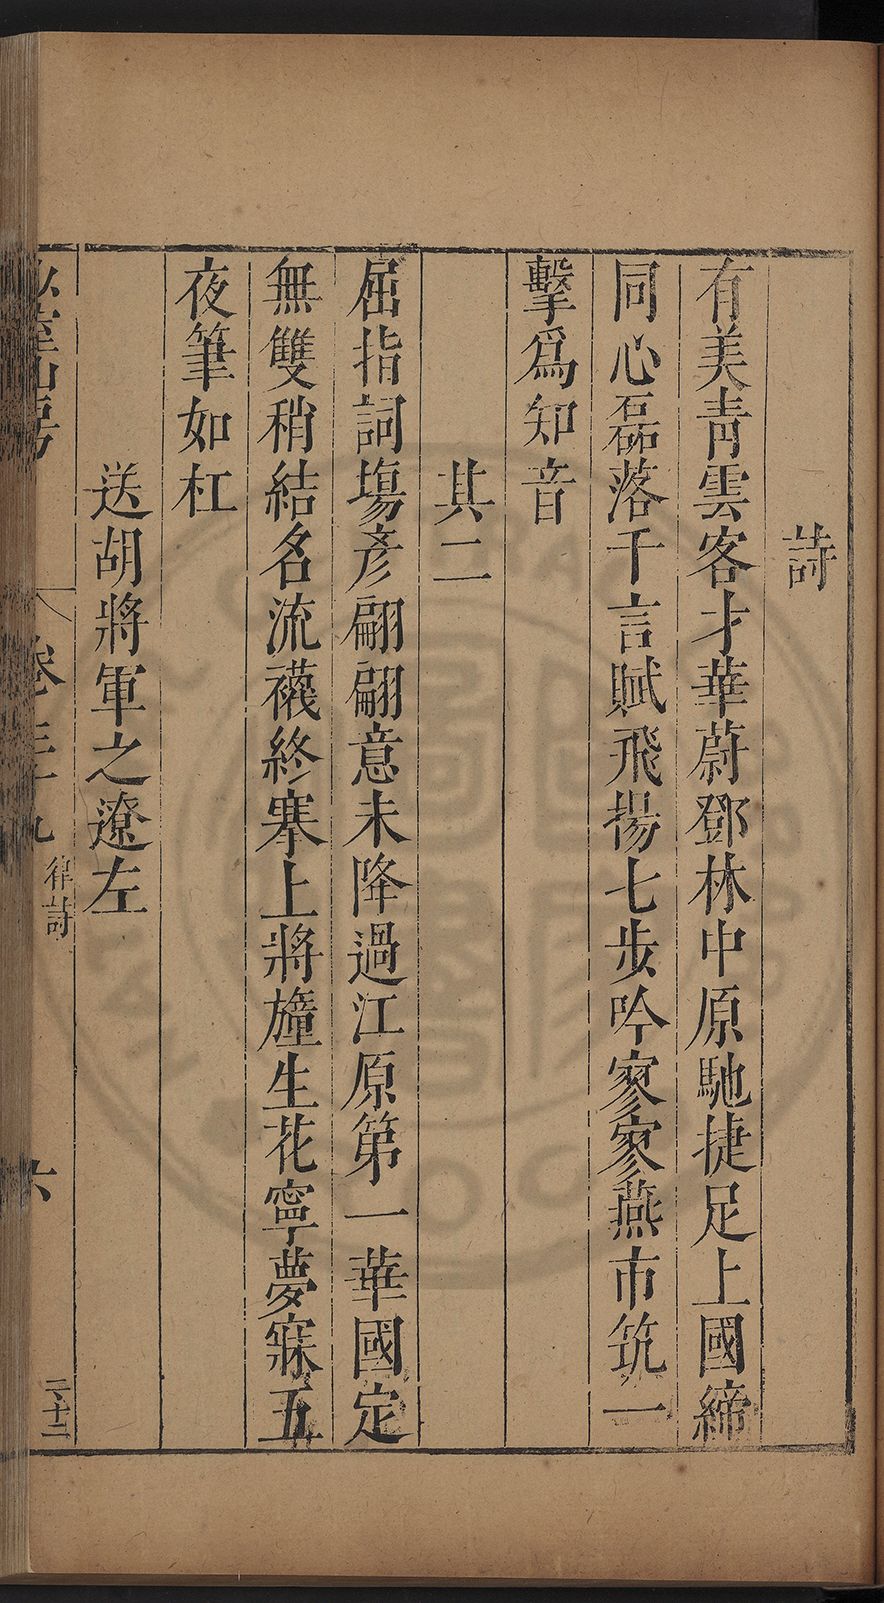 詩
有美青雲客才華蔚鄧林中原馳捷足上國締
同心磊落千言賦飛揚七步吟寥寥燕市筑一
擊爲知音
其二
屈指詞塲彥翩翩意未降過江原第一華國定
無雙稍結名流襪終搴上將旜生花寧夢寐五
夜筆如杠
送胡將軍之遼左
少室山房 卷三十九 律詩 六 二十二